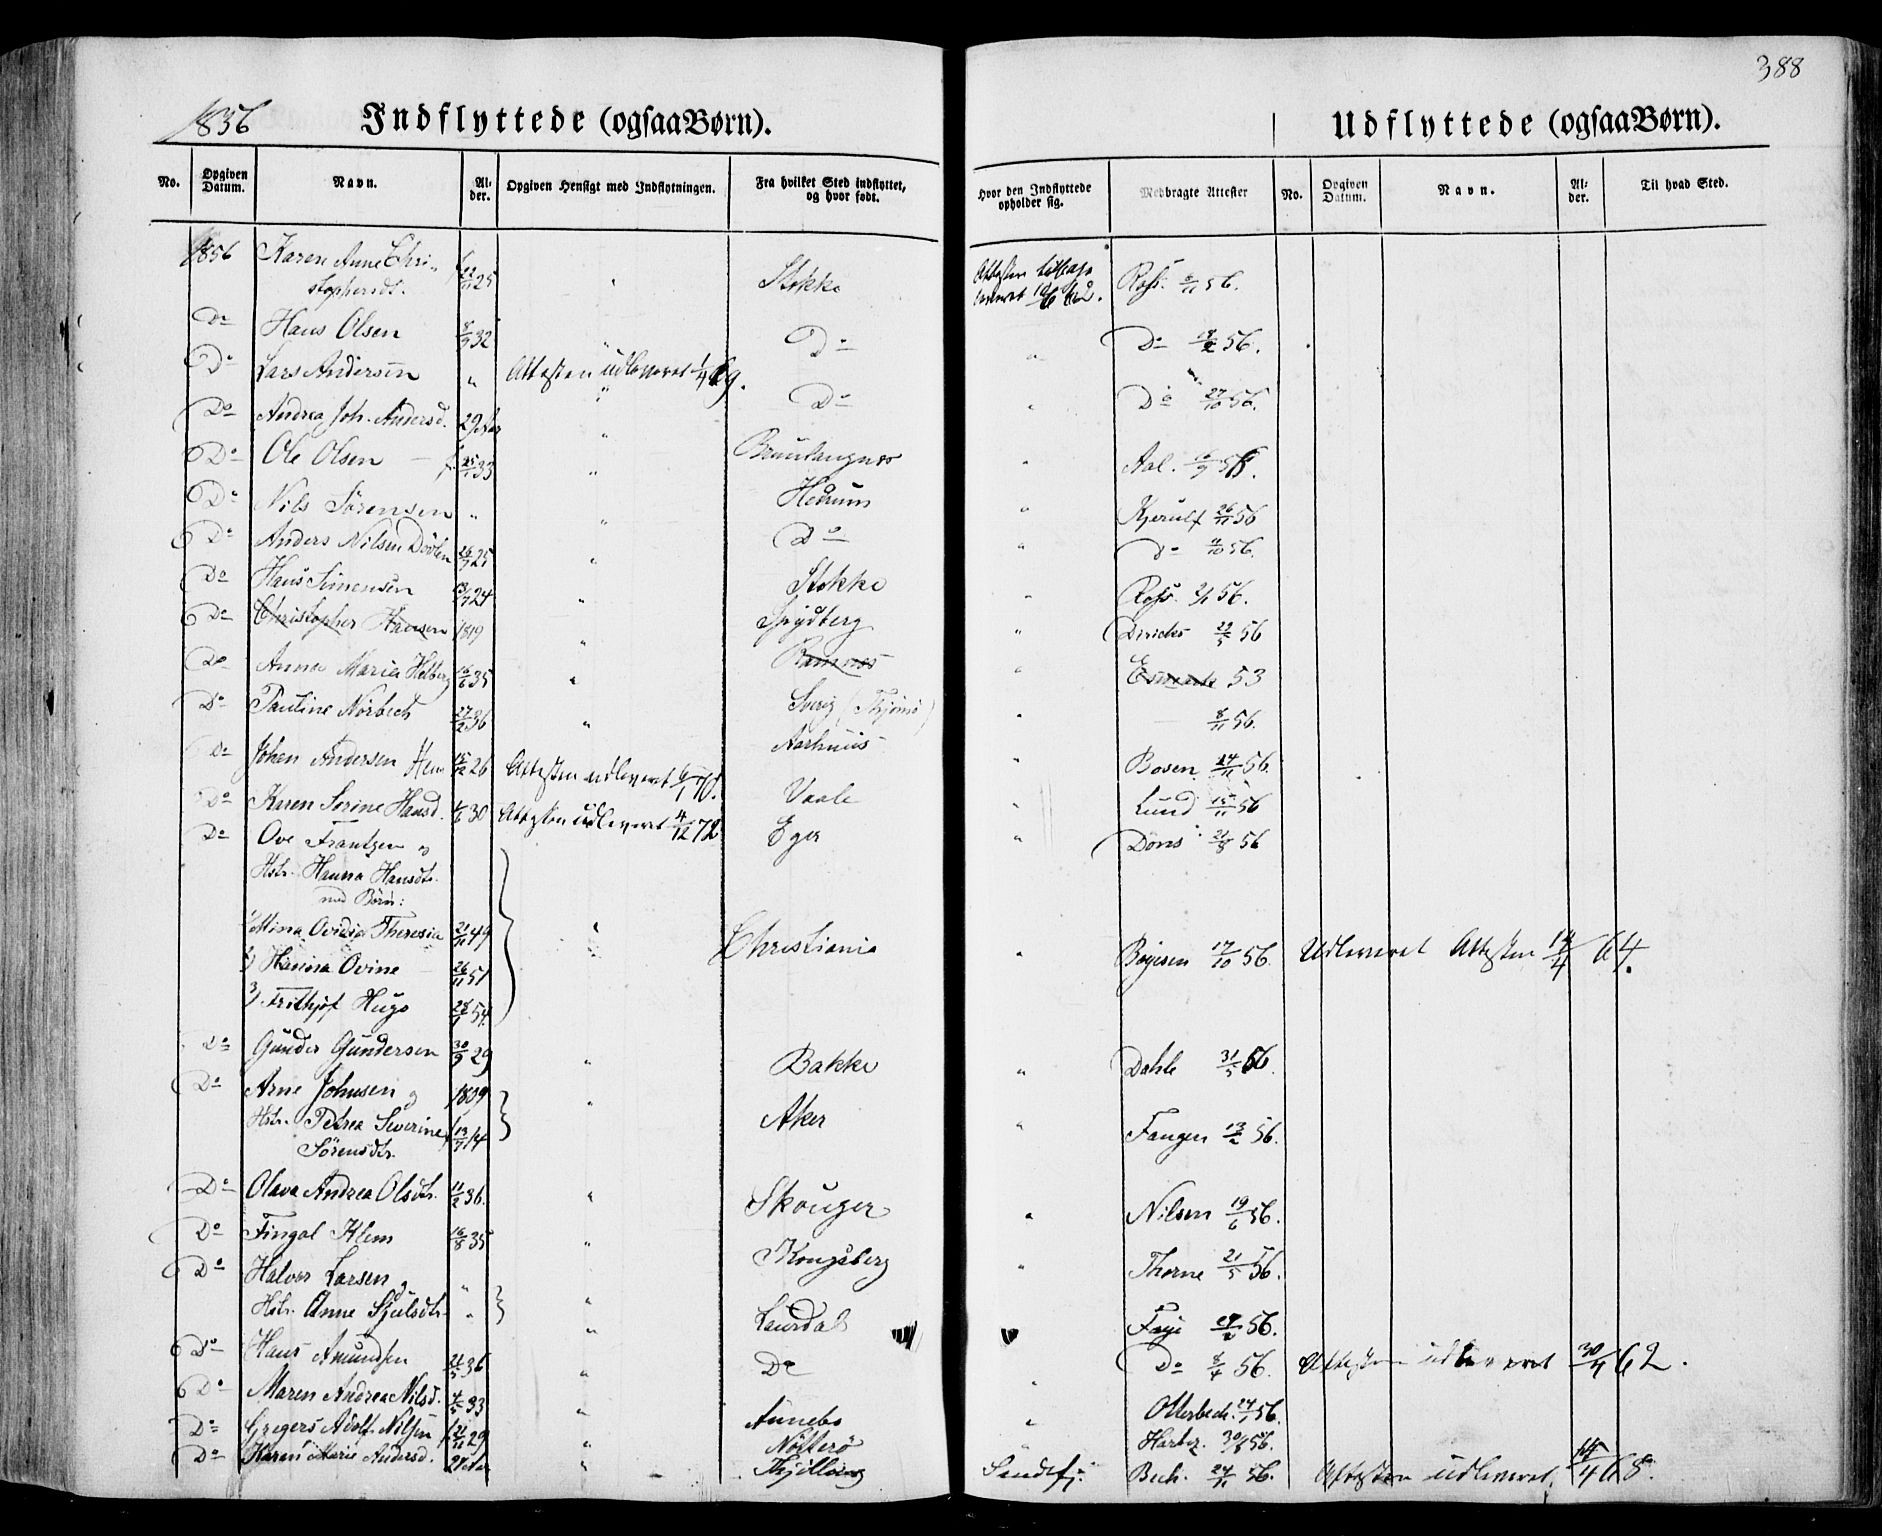 388
1856 Indflyttede (ogsaa Børn). Udflyttede (ogsaa Børn).
No. Opgiven Datum. Navn. Alder. Opgiven Hensigt med Indflytningen. Fra hvilket Sted indflyttet, og hvor født. Hvor den Indflyttede opholder sig. Medbragte Attester No. Opgiven Datum. Navn. Alder. Til hvad Sted.
1856 Karen Anne Chri-
stophersdt. 25 " Stokke Attesten 56.
Do Hans Olsen 8/9 32 " Do " Do 56.
Do Lars Andersen " Attesten udleveret 1/4 69. Do " Do 27/10 56.
Do Andrea Joh. Andersd. 29 Aar "
Do Ole Olsen 25/1 33 " Brunlangnes " Aal.
Do Nils Sørensen " " Hedrum " Kjerulf 26/11 56
Do Anders Nilsen 26/7 25 " Do " Do 56.
Do Hans Simensen 24 " Stokke " 56.
Do Christopher Hansen 1819 " Spydberg " Diricks 29/5 56
Do Anna Maria Helberg 16/6 35 " Ramnes " Esmark 53
Do Pauline Norbech 27/2 36 " Sverig (Thjømø) " 8/11 56.
Do Johan Andersen 15/12 26 Attesten udleveret 6/1 70. Aarhuus " Bosen 24/11 56.
Do Karen Serine Hansd. 30 Attesten udleveret 4/12 72 Vaale " Lund 15/11 56
Do Ove Frantzen og Eger " 21/8 56
Hstr. Hanna Hansdtr.
med Børn:
1/ Mina Ovidia Theresia 21/11 49 " Christiania " Bøyesen 17/10 56. Udleveret Attesten 14/4 64.
2/ Hanna Ovine 26/11 51
3/ Frithjof Hugo 54.
Do Gunder Gundersen 30/9 29 " Bakke " Dahle 31/5 56.
Do Arne Johnsen og 1809 " Aker " Fangen 13/2 56.
Hstr. Petrea Severine 13/7 14
Sørensdtr.
Do Olava Andrea Olsdtr. 11/2 36. " Skouger " Nilsen 19/6 56.
Do Fingal Klem 16/8 35 " Kongsberg " Thorne 21/5 56.
Do Halvor Larsen og "
Hstr. Anne Sjulsdtr. " " Laurdal Faye 56.
Do Hans Amundsen 21/5 36 " Do Do 56. Attesten udleveret 30/4 62.
Do Maren Andrea Nilsd. 4/5 33 " Annebo " Otterbech. 24/1 56.
Do Gregers Adolf Nilsen 21/11 29 " Nøtterø " 56.
Do Karen Marie Andersd. " Thjølling Sandefj. Bech. 24/11 56. Attesten udleveret 68.